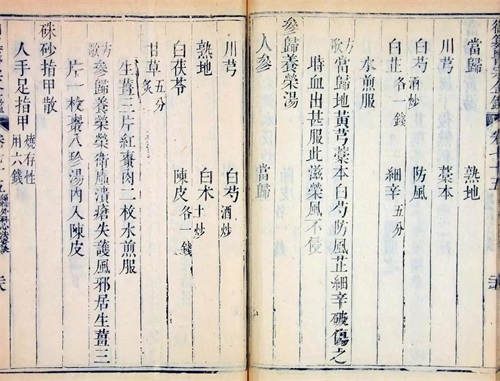 當歸 熟地
川芎 藁本
白芍酒炒 防風
白芷各一錢 細辛五分
水煎服
方歌當歸地黃芎藁本白芍防風芷細辛破傷之
時血出甚服此滋榮風不侵
參歸養榮湯
人參 當歸
川芎 白芍酒炒
熟地 白朮土炒
白茯苓 陳皮各一錢
甘草炙五分
生薑三片紅棗肉二枚水煎服
方歌參歸養榮榮衛虛潰瘡失護風邪居生薑三
片二枚棗八珍湯內入陳皮
硃砂指甲散
人手足指甲燒存性用六錢